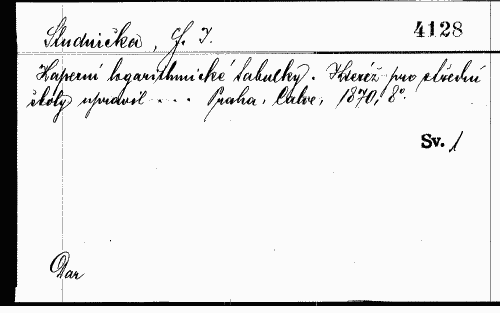 Studnička, F. J. 4128
Kapesní logarithmické tabulky. Kteréž pro střední
školy upravil ... Praha, Calve, 1870, 8°.
Sv. 1
Dar